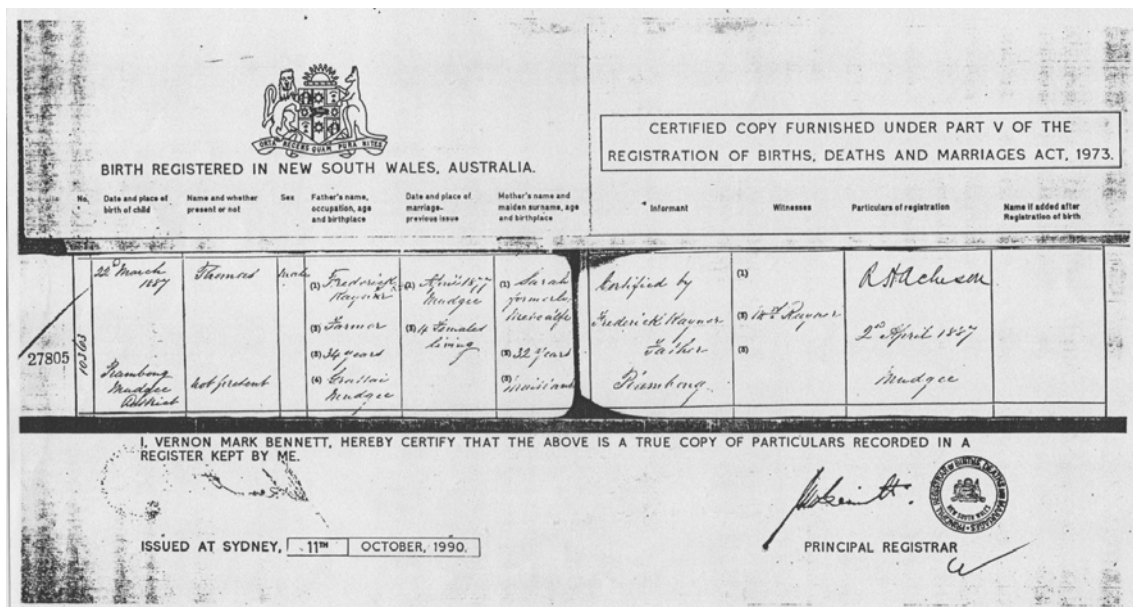 ORTA RECENS QUAM PURA NITES
BIRTH REGISTERED IN NEW SOUTH WALES, AUSTRALIA.
CERTIFIED COPY FURNISHED UNDER PART V OF THE
REGISTRATION OF BIRTHS, DEATHS AND MARRIAGES ACT, 1973.
No.
Date and place of
birth of child
Name and whether
present or not
Sex
Father's name,
occupation, age
and birthplace
Date and place of
marriage-
previous issue
Mother's name and
maiden surname, age
and birthplace
Informant
Witnesses
Particulars of registration
Name if added after
Registration of birth
27805
22d March
1887
Mudgee
District
Thomas
not present
Male
(1) Frederick
(2) Farmer
(3) 34 years
(4)
Mudgee
(1) April 1877
Mudgee
(2) 4 Females
living
(1) Sarah
formerly
(2) 32 years
(3)
Certified by
Frederick
Father
(1)
(2)
(3)
2d April 1887
Mudgee
I, VERNON MARK BENNETT, HEREBY CERTIFY THAT THE ABOVE IS A TRUE COPY OF PARTICULARS RECORDED IN A
REGISTER KEPT BY ME.
ISSUED AT SYDNEY, 11TH OCTOBER, 1990.
PRINCIPAL REGISTRAR OF BIRTHS, DEATHS AND MARRIAGES
NEW SOUTH WALES
PRINCIPAL REGISTRAR